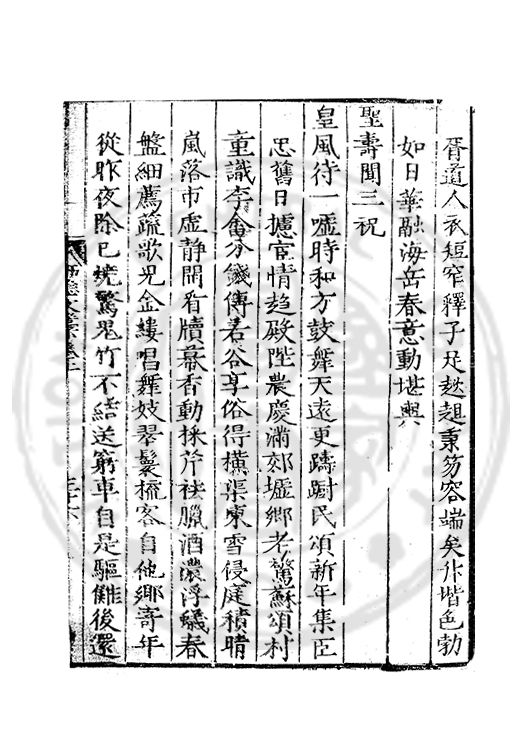 胥道人衣短窄釋子足趑趄秉笏容端矣升堦色勃
如日華融海岳春意動堪輿
聖壽聞三祝
皇風待一噓時和方鼓舞天遠更躊蹰民頌新年集臣
思舊日攄官情趋殿陛農慶滿郊墟鄉老驚蘇頌村
童識李分錢傳若谷享俗得橫渠東雪侵庭積晴
嵐落市虛静閒看牘幕香動採芹裾臘酒濃浮蟻春
盤細薦疏歌兒金縷唱舞妓翠鬟梳客自他鄉寄年
從昨夜除已燒驚鬼竹不結送窮車自是驅儺後還